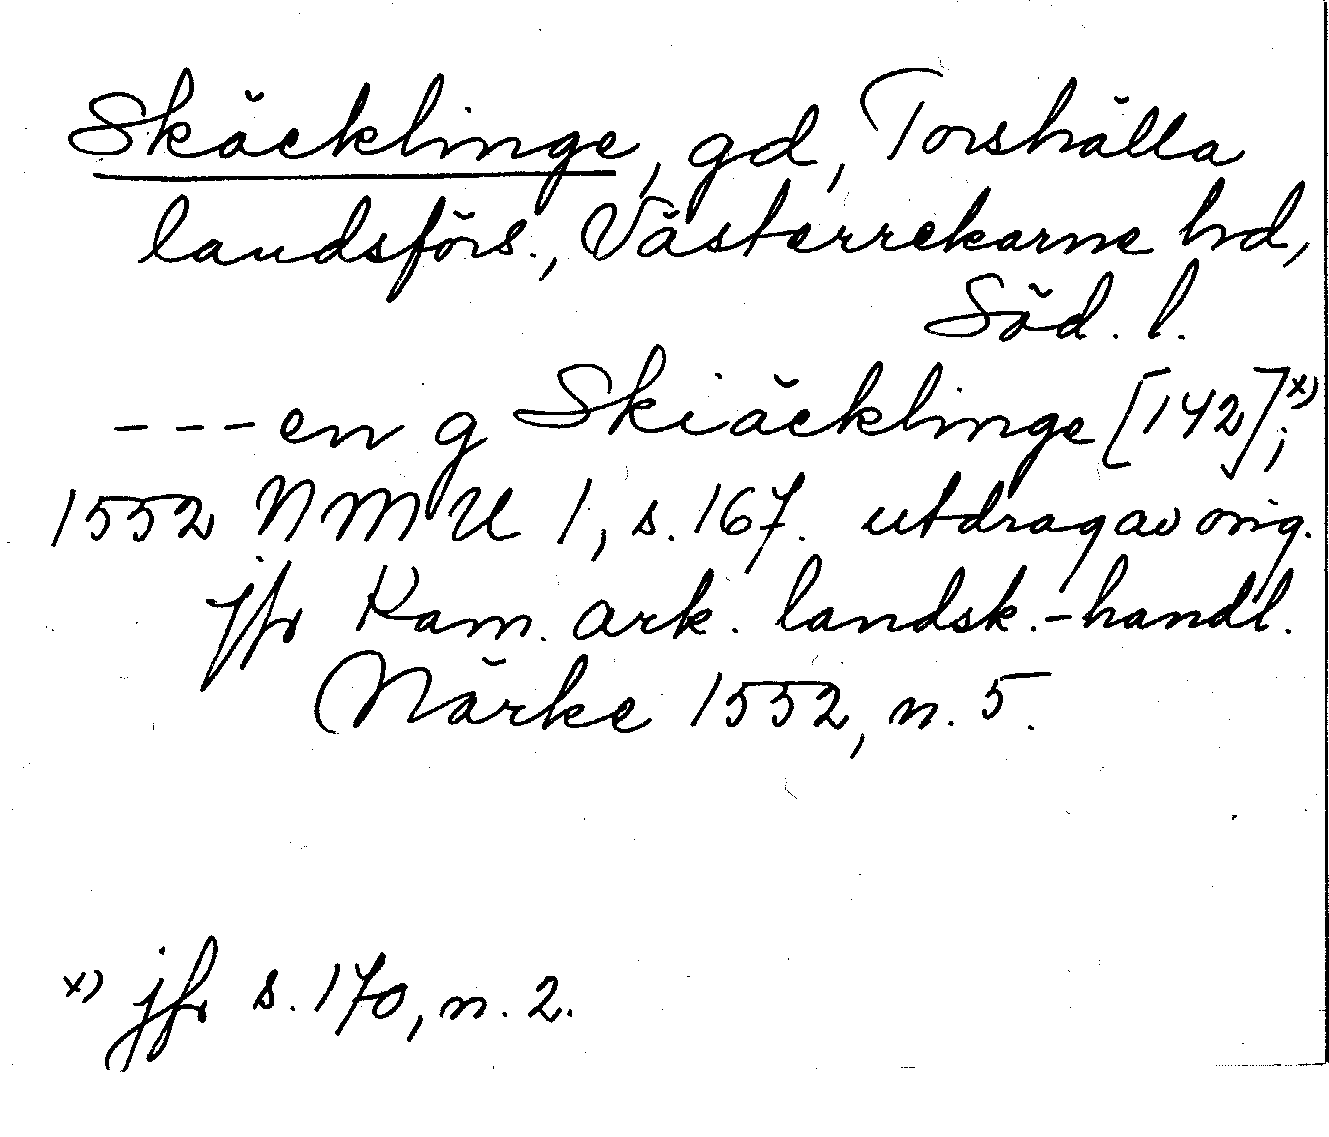 Skäcklinge, gd, Torshälla
landsförs., Västerrekarne hrd,
Söd. l.
---en g Skiäcklinge [142]x);
1552 NMU 1, s. 167. utdrag av orig.
jfr Kam. ark. landsk.-handl.
Närke 1552, n. 5.
x) jfr s. 170, n. 2.